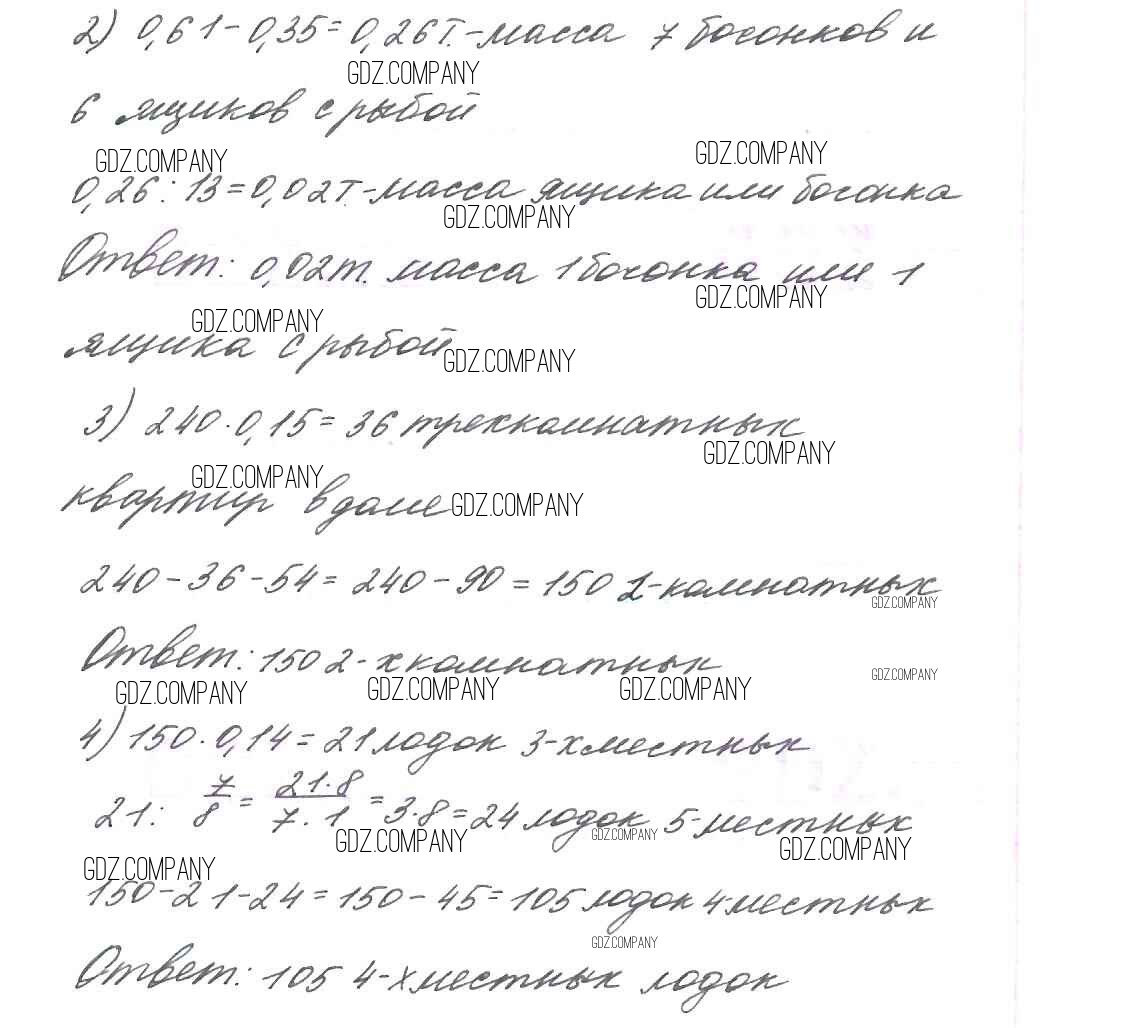 2) 0,61-0,35=0,26т.-масса 7 бочонков и
GDZ.COMPANY
6 ящиков с рыбой
GDZ.COMPANY GDZ.COMPANY
0,26:13=0,02т.-масса ящика или бочонка
GDZ.COMPANY
Ответ: 0,02т. масса 1 бочонка или 1
GDZ.COMPANY
GDZ.COMPANY
ящика с рыбой
GDZ.COMPANY
3) 240·0,15=36 трехкомнатных
GDZ.COMPANY
GDZ.COMPANY
квартир в доме
GDZ.COMPANY
240-36-54=240-90=150 2-комнатных
GDZ.COMPANY
Ответ: 150 2-хкомнатных
GDZ.COMPANY
GDZ.COMPANY GDZ.COMPANY GDZ.COMPANY
4) 150·0,14=21 лодок 3-хместных
21: 7/8 = 21·8/7·1 =3·8=24 лодок 5-местных
GDZ.COMPANY GDZ.COMPANY GDZ.COMPANY
GDZ.COMPANY
150-21-24=150-45=105 лодок 4-местных
GDZ.COMPANY
Ответ: 105 4-хместных лодок